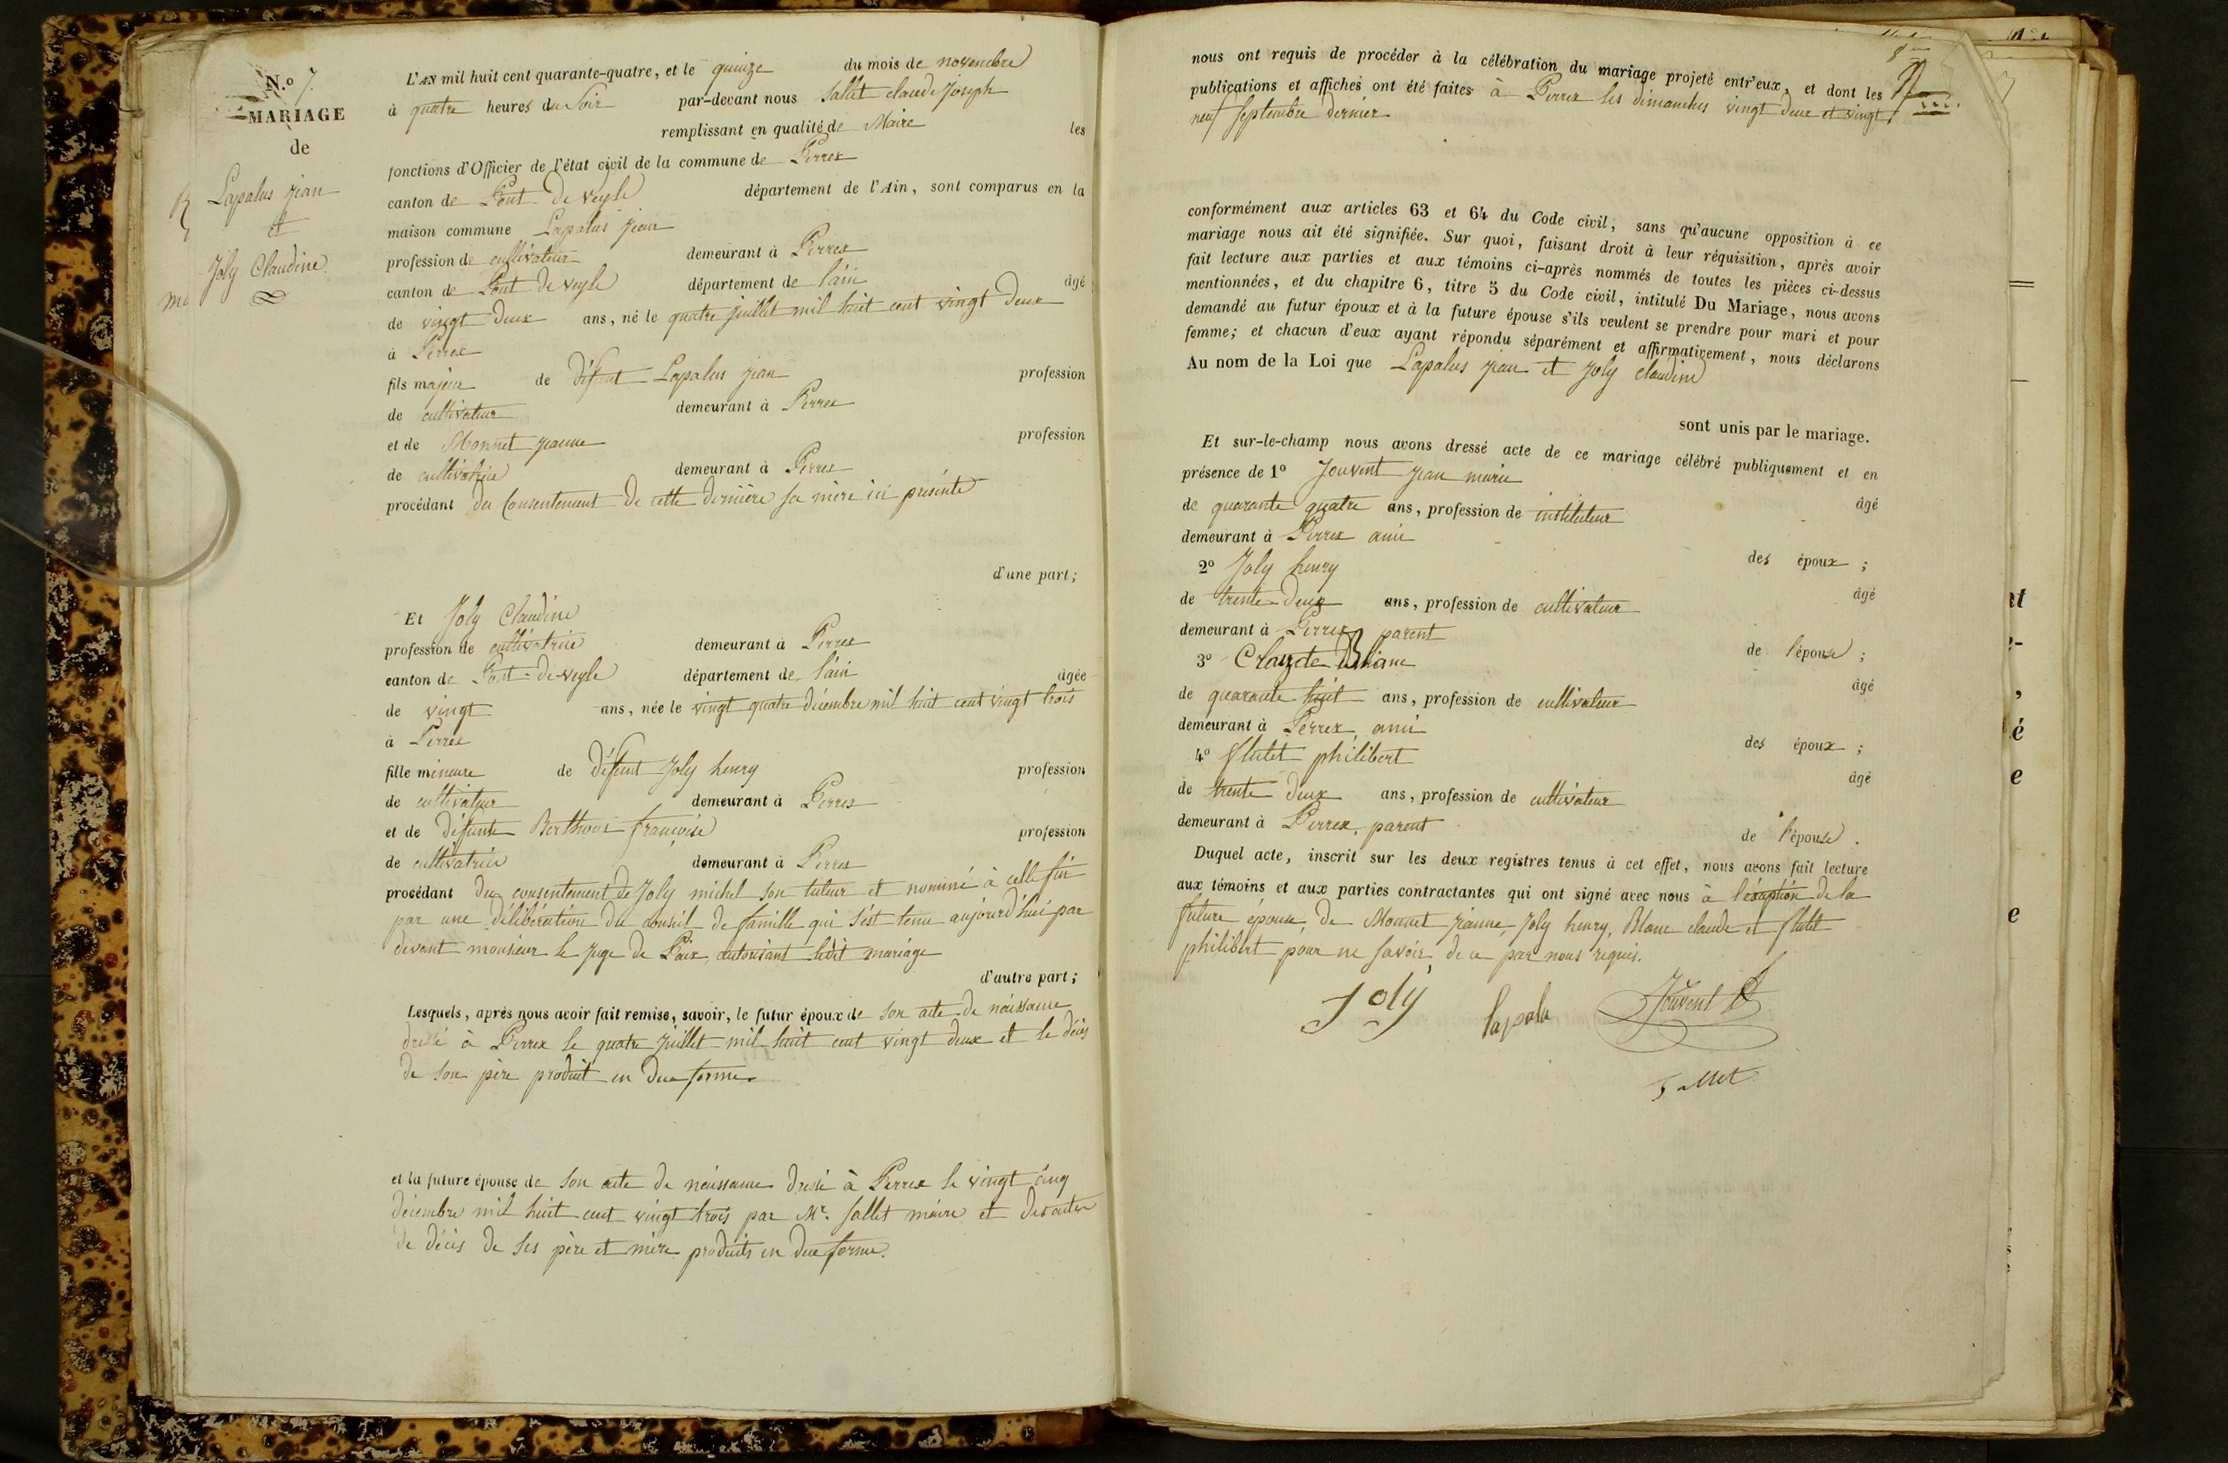 N.o 7.
MARIAGE
de
Lapalus jean
et
Joly Claudine
L'AN mil huit cent quarante-quatre, et le quinze du mois de novembre
à quatre heures du Soir par-devant nous Sallet claude joseph
remplissant en qualité de Maire les
fonctions d'Officier de l'état civil de la commune de Perrex
canton de Pont De veyle département de l'Ain, sont comparus en la
maison commune Lapalus jean
profession de cultivateur demeurant à Perrex
canton de Pont De veyle département de l'ain âgé
de vingt Deux ans, né le quatre juillet mil huit cent vingt Deux
à Perrex
fils majeur de Défunt Lapalus jean profession
de cultivateur demeurant à Perrex
et de Monnet jeanne profession
de cultivatrice demeurant à Perrex
procédant du Consentement De cette dernière sa mère ici présente
d'une part;
Et Joly Claudine
profession de cultivatrice demeurant à Perrex
canton de Pont-de-veyle département de l'ain âgée
de vingt ans, née le vingt quatre décembre mil huit cent vingt trois
à Perrex
fille mineure de défunt Joly henry profession
de cultivateur demeurant à Perrex
et de défunte françoise profession
de cultivatrice demeurant à Perrex
procédant du consentement de Joly michel son tuteur et nommé à celle fin
par une délibération du conseil de famille qui s'est tenu aujourd'hui par
devant monsieur le juge de Paix, autorisant ledit mariage
d'autre part;
Lesquels, après nous avoir fait remise, savoir, le futur époux de son acte de naissance
dressé à Perrex le quatre juillet mil huit cent vingt deux et le décès
de son père produit en due forme
et la future épouse de son acte de naissance dressé à Perrex le vingt cinq
décembre mil huit cent vingt trois par Mr. Sallet maire et des actes
de décès de ses père et mère produits en due forme.
nous ont requis de procéder à la célébration du mariage projeté entr'eux, et dont les
publications et affiches ont été faites à Perrex les dimanches vingt deux et vingt
neuf septembre dernier
conformément aux articles 63 et 64 du Code civil, sans qu'aucune opposition à ce
mariage nous ait été signifiée. Sur quoi, faisant droit à leur réquisition, après avoir
fait lecture aux parties et aux témoins ci-après nommés de toutes les pièces ci-dessus
mentionnées, et du chapitre 6, titre 5 du Code civil, intitulé Du Mariage, nous avons
demandé au futur époux et à la future épouse s'ils veulent se prendre pour mari et pour
femme; et chacun d'eux ayant répondu séparément et affirmativement, nous déclarons
Au nom de la Loi que Lapalus jean et Joly claudine
sont unis par le mariage.
Et sur-le-champ nous avons dressé acte de ce mariage célébré publiquement et en
présence de 1o Jouvent jean marie
de quarante quatre ans, profession de instituteur âgé
demeurant à Perrex ami
2o Joly henry des époux ;
de trente-deux ans, profession de cultivateur âgé
demeurant à Perrex parent
3o Claude Blanc de l'épouse ;
de quarante huit ans, profession de cultivateur âgé
demeurant à Perrex, ami
4o flutet philibert des époux ;
de trente deux ans, profession de cultivateur âgé
demeurant à Perrex, parent
de l'épouse.
Duquel acte, inscrit sur les deux registres tenus à cet effet, nous avons fait lecture
aux témoins et aux parties contractantes qui ont signé avec nous à l'éxeption de la
future épouse, de Monnet jeanne, Joly henry, Blanc claude et flutet
philibert pour ne savoir de ce par nous requis.
Joly lapala Jouvent
Sallet